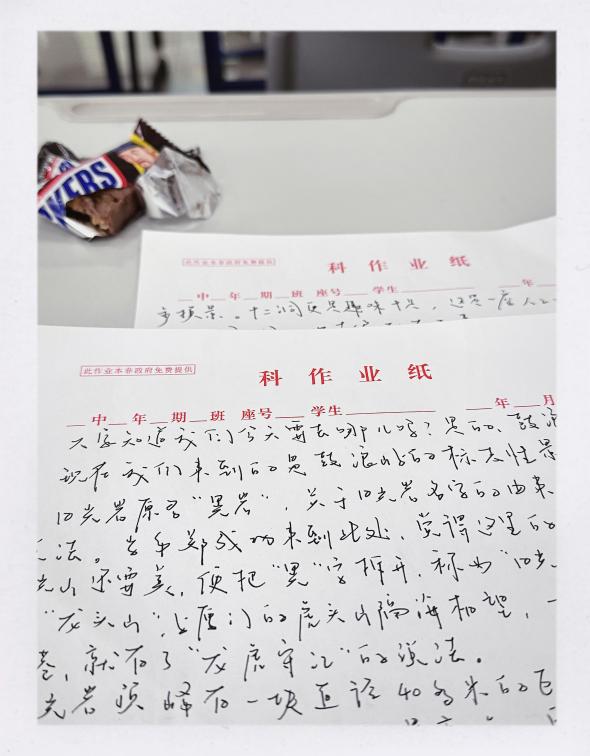 KERS
此作业本春政府免费提供
科 作 业 纸
中 年 期 班 座号 学生 年
多模景。十二洞天足趣味十足，这是一座人工
此作业本春政府免费提供
科 作 业 纸
中 年 期 班 座号 学生 年 月
大家知道我们今天要去哪儿吗？是的，鼓浪
现在我们来到的是鼓浪屿的标志性景
日光岩原名“晃岩”，关于日光岩名字的由来
法。当年郑成功来到此处，觉得这里的
光山还要美，便把“晃”字拆开，称为“日光
“龙头山”，与厦门的虎头山隔海相望，一
巷，就有了“龙虎守江”的说法。
光岩顶峰有一块直径40多米的巨